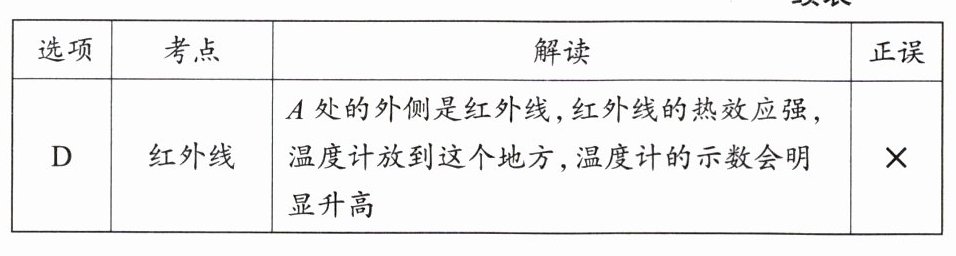 选项 考点 解读 正误
A 处的外侧是红外线,红外线的热效应强,
D 红外线 温度计放到这个地方,温度计的示数会明 ×
显升高